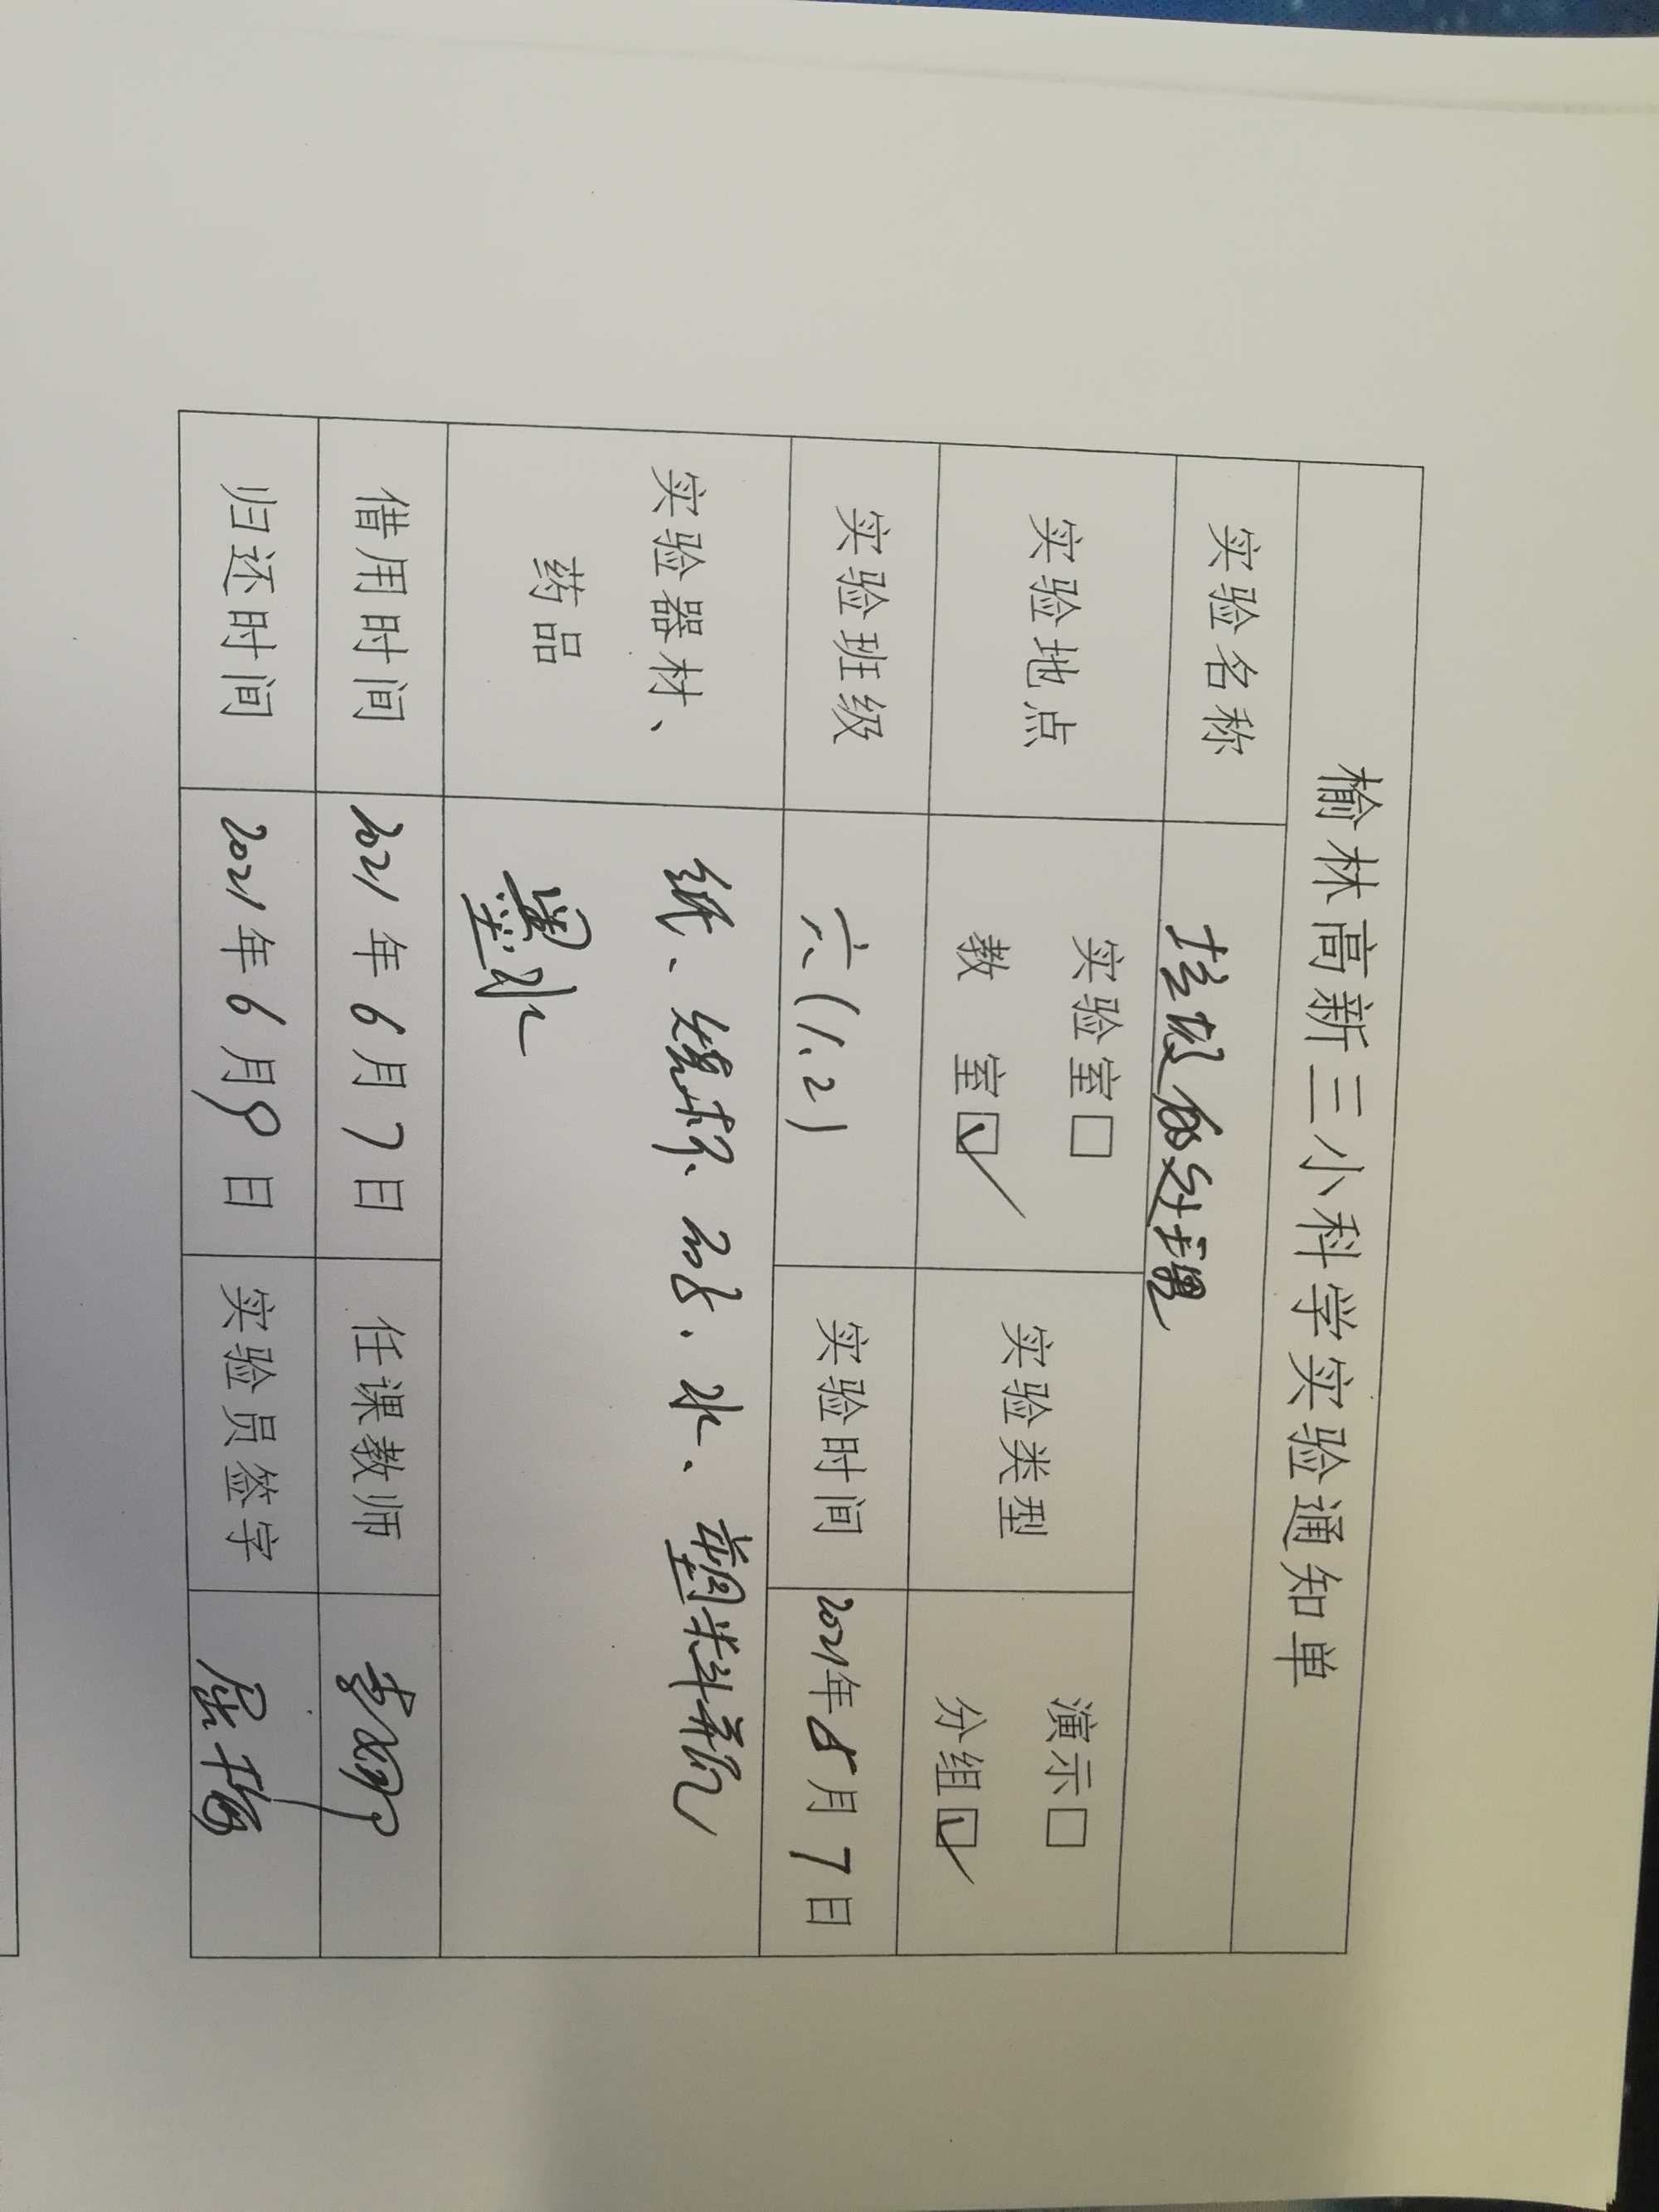 榆林高新三小科学实验通知单
实验名称 垃圾的处理
实验地点 实验室□ 教 室☑ 实验类型 演示□ 分组☑
实验班级 六(1.2) 实验时间 2021年6月7日
实验器材、药品 纸、水、塑料瓶
墨水
借用时间 2021年6月7日 任课教师
归还时间 2021年6月9日 实验员签字